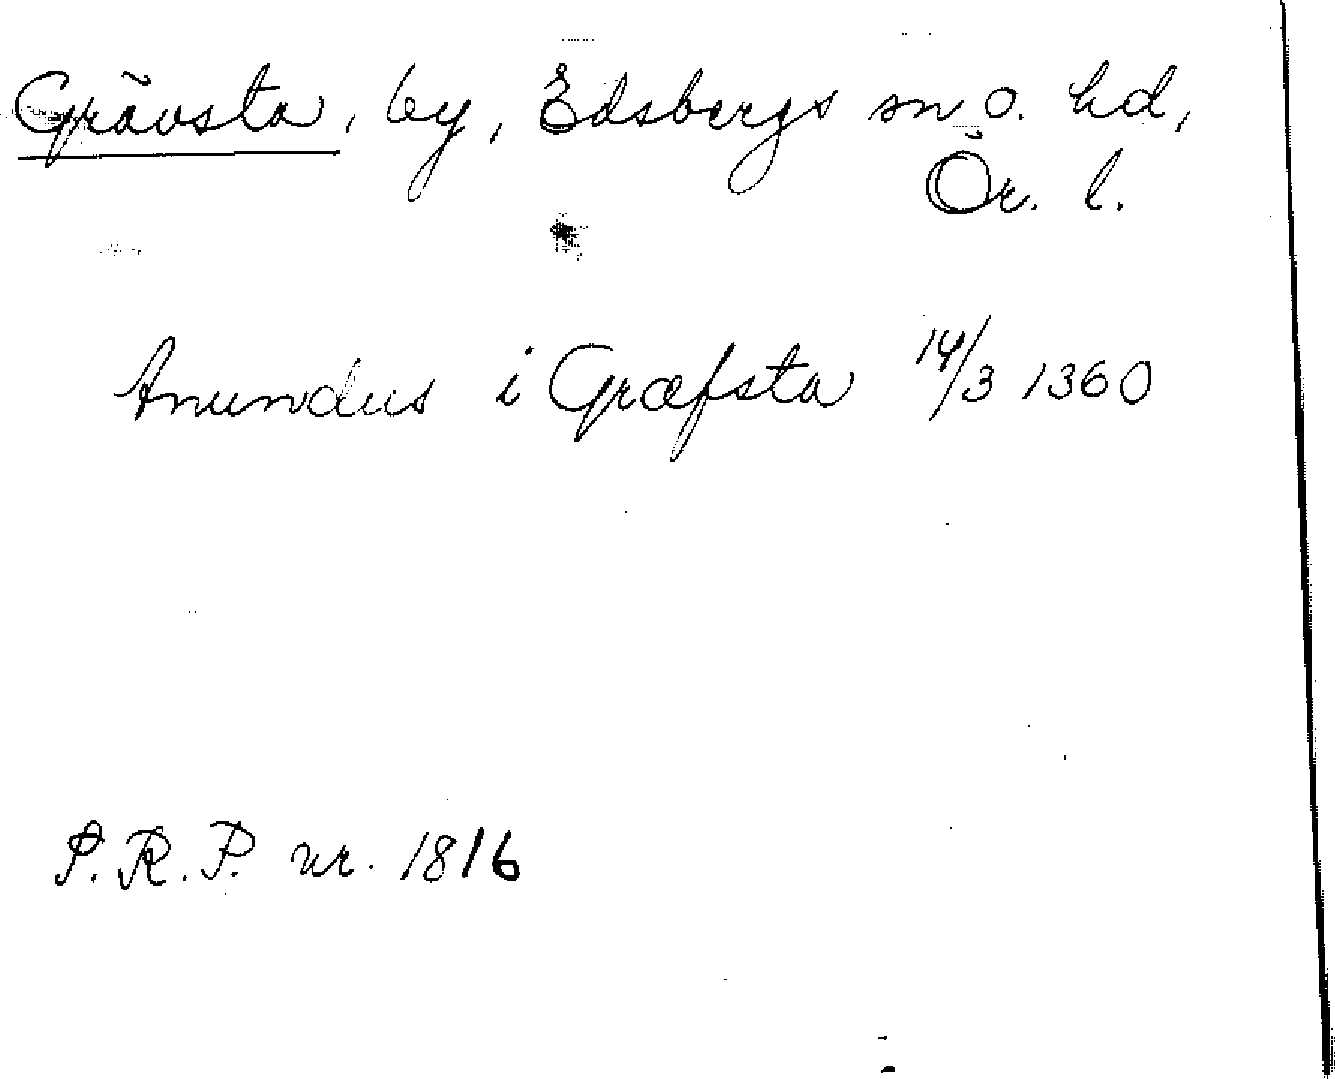 Grävsta, by, Edsbergs sn o. hd,
Ör. l.
Anundus i Græfsta 14/3 1360
P.R.P. nr. 1816